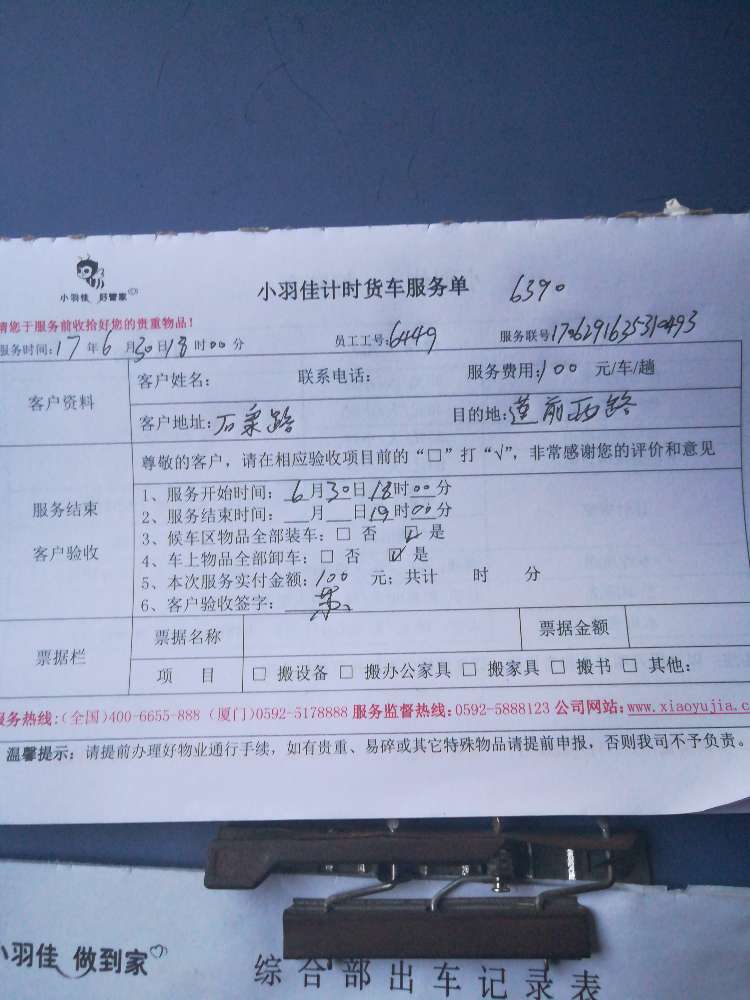 小羽佳 好管家
小羽佳计时货车服务单 6390
请您于服务前收拾好您的贵重物品！
服务时间：17年6月30日18时00分 员工工号：6449 服务联号1706291635310493
客户资料
客户姓名： 联系电话： 服务费用：100 元/车/趟
客户地址： 路 目的地：莲前西路
服务结束
客户验收
尊敬的客户，请在相应验收项目前的“□”打“√”，非常感谢您的评价和意见
1、服务开始时间：6月30日18时00分
2、服务结束时间：__月__日19时00分
3、候车区物品全部装车：□ 否 ☑ 是
4、车上物品全部卸车：□ 否 ☑ 是
5、本次服务实付金额：100 元；共计 时 分
6、客户验收签字：
票据栏
票据名称 票据金额
项 目 □ 搬设备 □ 搬办公家具 □ 搬家具 □ 搬书 □ 其他：
服务热线：（全国）400-6655-888（厦门）0592-5178888 服务监督热线：0592-5888123 公司网站：www.xiaoyujia.c
温馨提示：请提前办理好物业通行手续，如有贵重、易碎或其它特殊物品请提前申报，否则我司不予负责。
小羽佳 做到家
综合部出车记录表